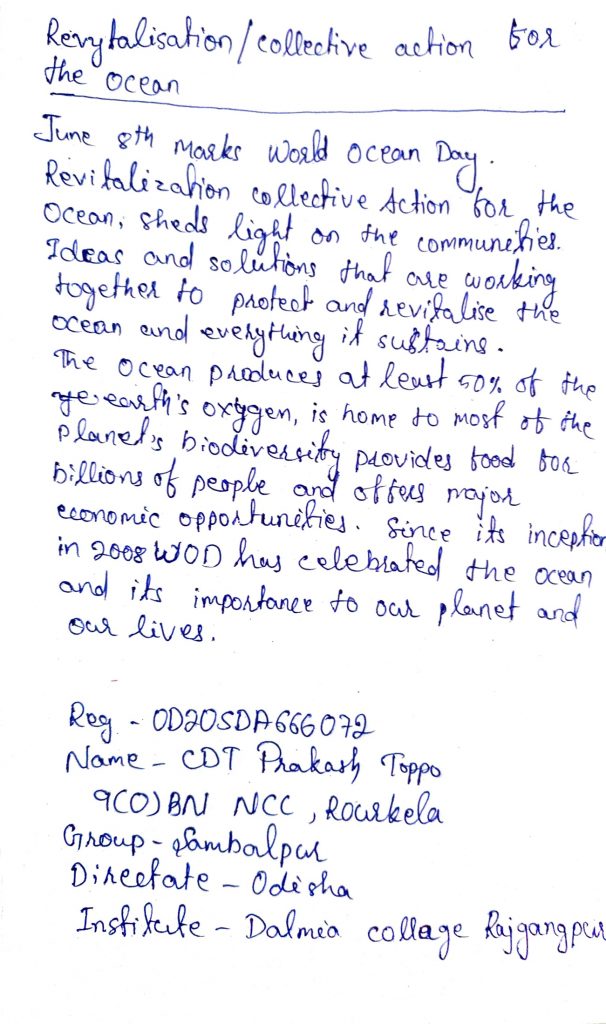 Revytalisation/collective action for
the ocean
June 8th Marks World Ocean Day.
Revitalization collective Action for the
Ocean, sheds light on the communeties.
Ideas and solutions that are working
together to protect and revitalise the
ocean and everything it sustains.
The ocean produces at least 50% of the
earth's oxygen, is home to most of the
planet's biodiversity provides food for
billions of people and offers major
economic opportuneties. Since its inception
in 2008 WOD has celebrated the ocean
and its importance to our planet and
our lives.
Reg - OD20SDA666072
Name - CDT Prakash Toppo
9(O) BN NCC, Rourkela
Group - Sambalpur
Directate - Odisha
Institute - Dalmia collage Rajgangpur